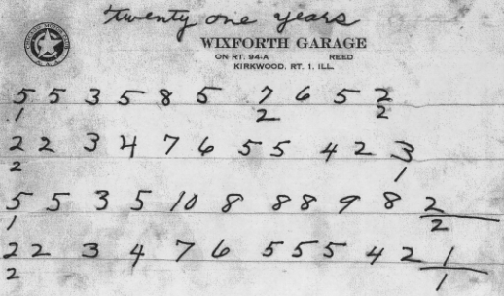 twenty one years
WIXFORTH GARAGE
ON RT. 94-A REED
KIRKWOOD, RT. 1, ILL.
5 5 3 5 8 5 7 6 5 2
1 2 2
2 2 3 4 7 6 5 5 4 2 3
2 1
5 5 3 5 10 8 8 8 9 8 2
1 2
2 2 3 4 7 6 5 5 5 4 2 1
2 1